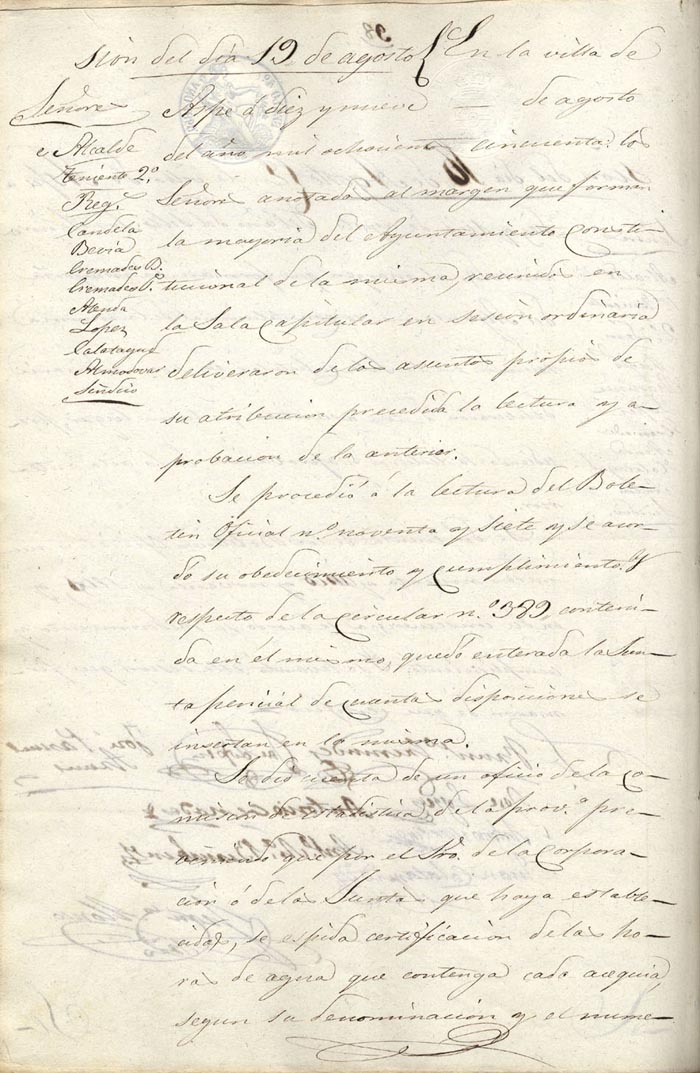 sion del dia 19 de agosto En la villa de
Señores
Aspe á diez y nueve — de agosto
Alcalde
del año mil ochocientos cincuenta: los
Teniente 2.º
Reg.s
Señores anotados al margen que forman
Candela
Bevia
la mayoria del Ayuntamiento Consti-
Cremades B.
Cremades P.º
tucional de la misma, reunidos en
Abenda
Lopez
la Sala Capitular en sesion ordinaria
Calatayud
Almodovar
Sindico
deliveraron de los asuntos propios de
su atribucion precedida la lectura y a-
probacion de la anterior.
Se procedió á la lectura del Bole-
tin Oficial n.º noventa y siete y se acor-
dó su obedecimiento y cumplimiento. Y
respecto de la circular n.º 389, conteni-
da en él mismo, quedó enterada la Jun-
ta pericial de cuantas disposiciones se
insertan en la misma.
Se dió cuenta de un oficio de la Co-
mision de Estadistica de la prov.a pre-
viniendo que por el Srio. de la Corpora-
cion ó de la Junta que haya estable-
cida, se espida certificacion de las ho-
ras de agua que contenga cada acequia,
segun su denominacion y el nume-